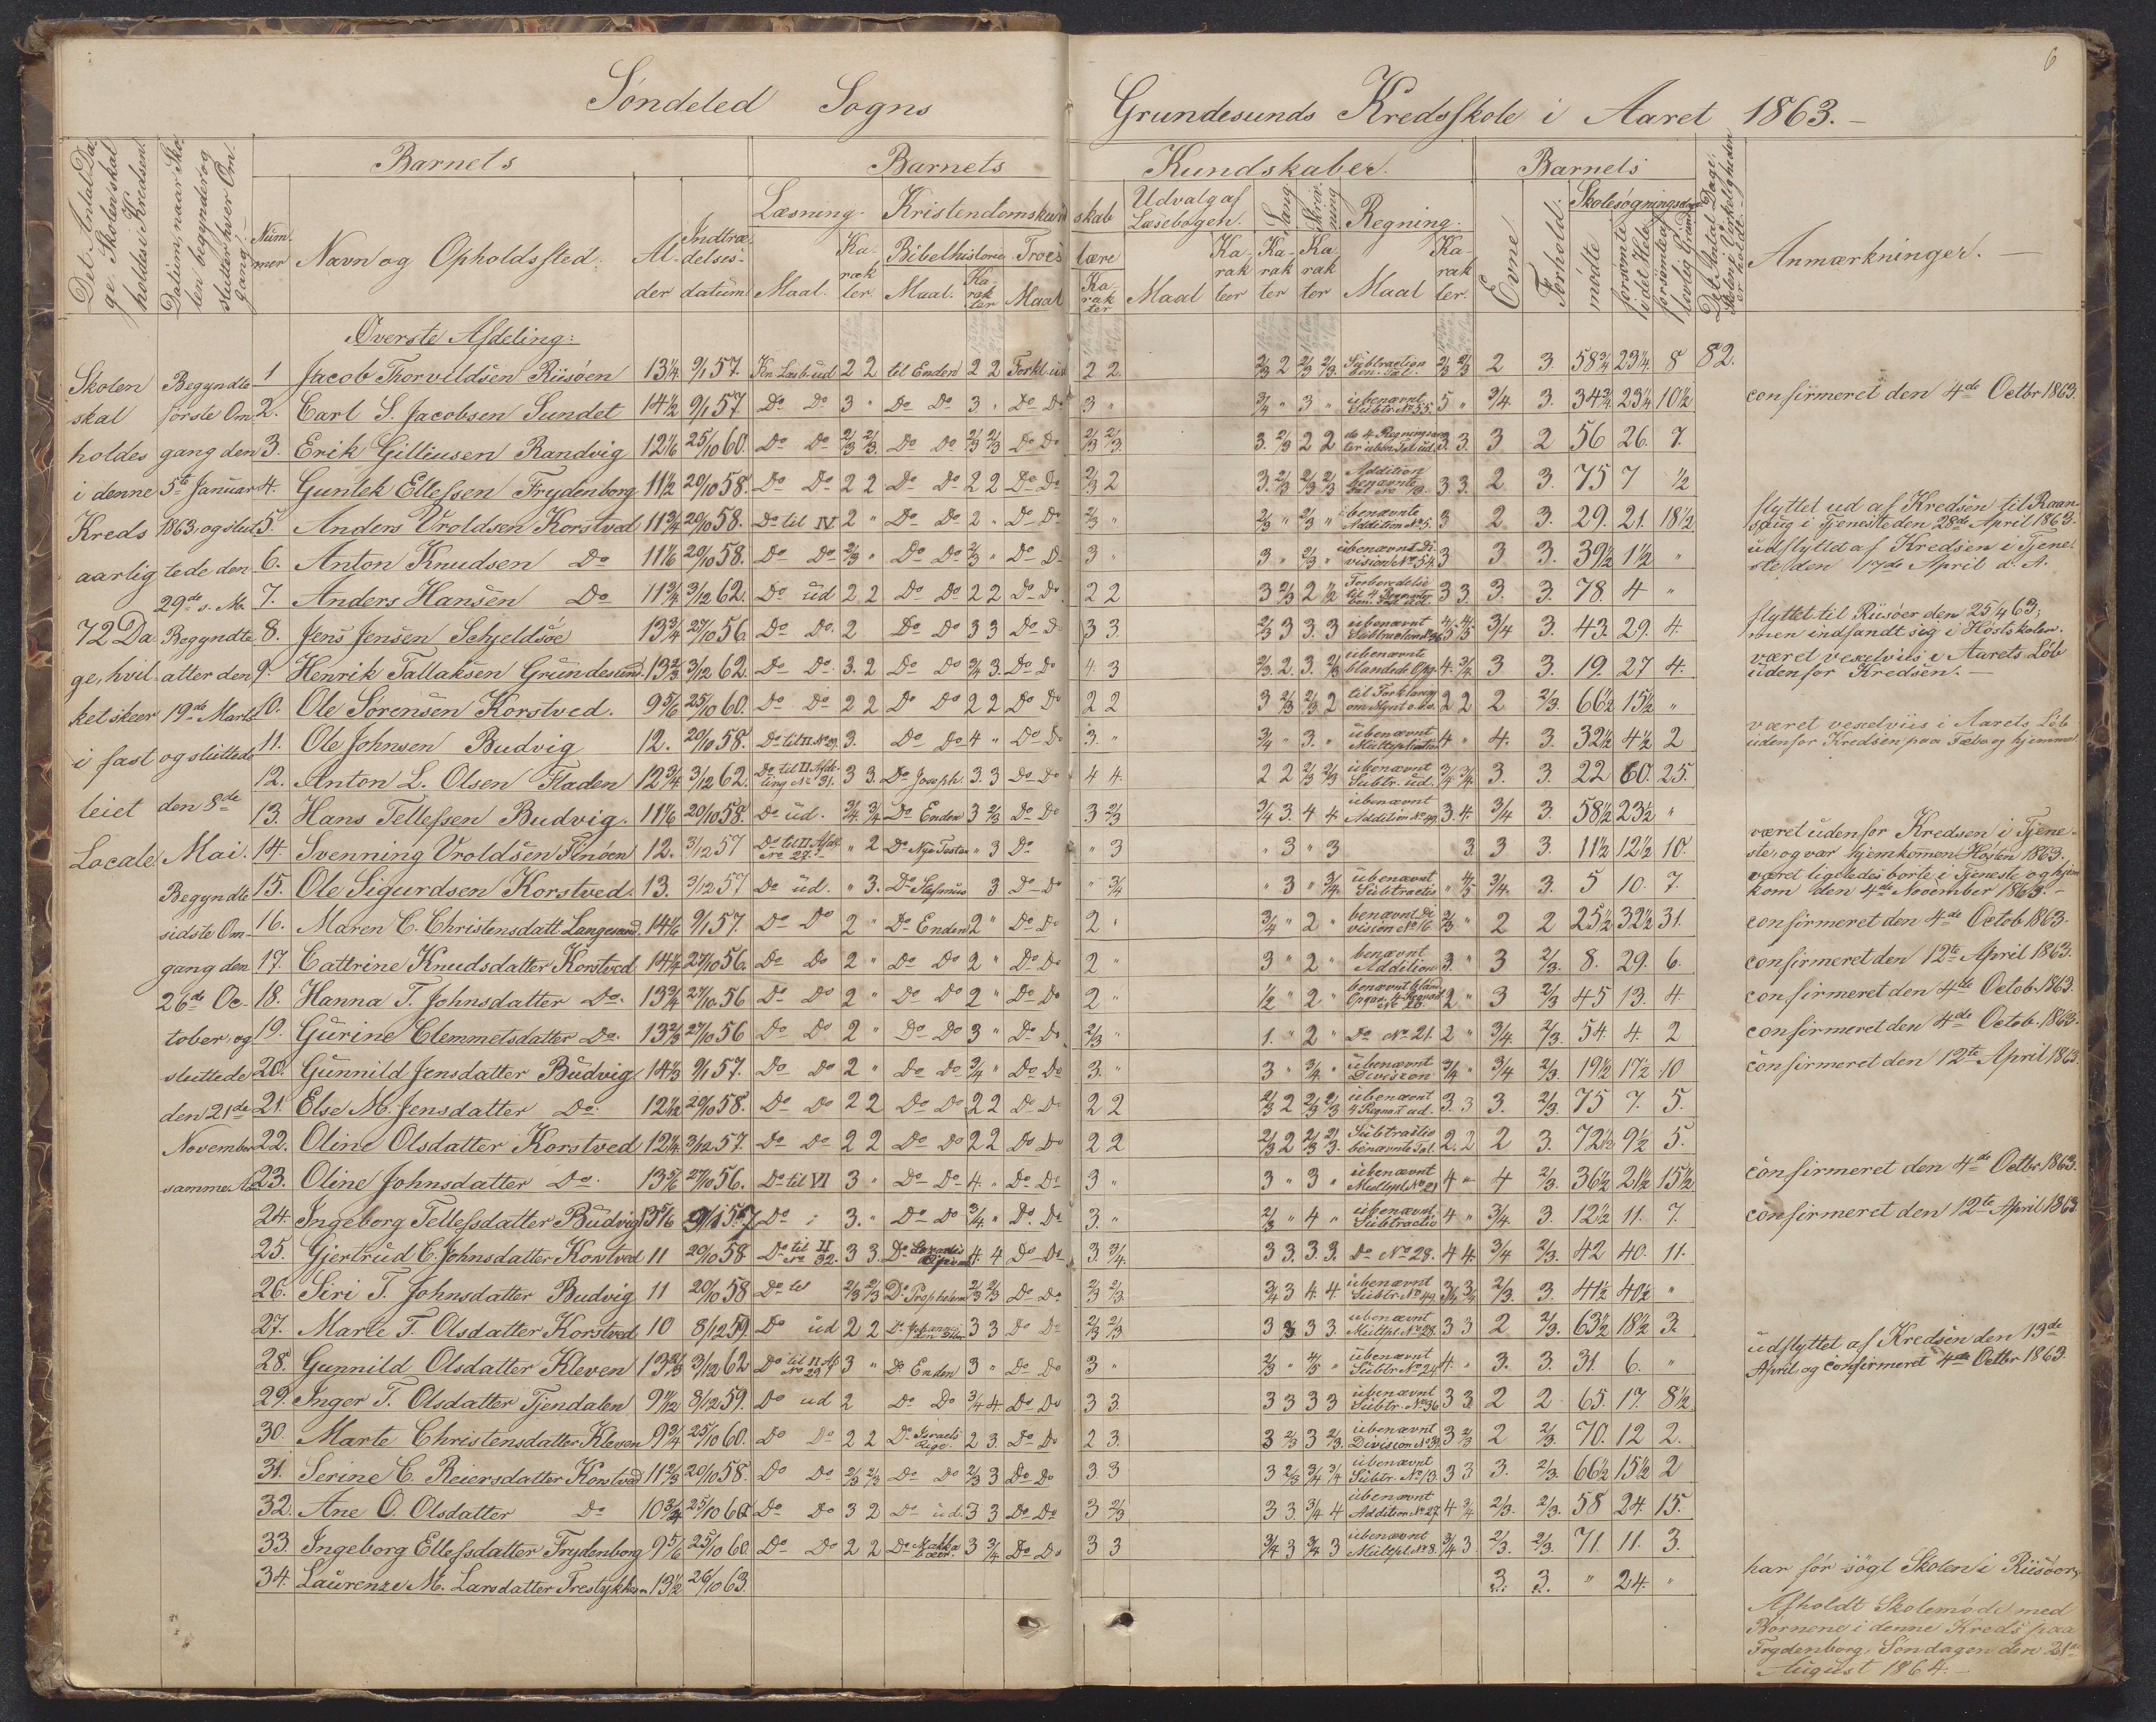 6
Søndeled Sogns Grundesunds Kredsskole i Aaret 1863.
Barnets Barnets Kundskaber. Barnets
Det Antal Dage Skolen skal holdes i Kredsen.
Datum, naar Skolen begynder og slutter hver Omgang.
Nummer
Navn og Opholdssted.
Alder
Indtrædelsesdatum.
Læsning. Maal. Karakter.
Kristendomskundskab
Bibelhistorie. Maal. Karakter
Troeslære Maal Karakter
Udvalg af Læsebogen. Maal Karakter
Sang. Karakter
Skrivning Karakter
Regning. Maal Karakter.
Evne.
Forhold.
Skolesøgningsdage
mødte
forsømte i det Hele.
forsømte af lovlig Grund
Det Antal Dage, Skolen i Virkeligheden er holdt.
Anmærkninger.
Skolen skal holdes i denne Kreds aarlig 72 Dage, hvilket skeer i fast leiet Locale.
Begyndte første Omgang den 5te Januar 1863, og sluttede den 29de s. M.
Begyndte atter den 19de Marts og sluttede den 8de Mai.
Begyndte sidste Omgang den 26de October, og sluttede den 21de November samme Aar
Øverste Afdeling:
1 Jacob Thorvildsen Riisøen 13 1/4 9/1 57. 2 2 til Enden 2 2 2 2. 2/3 2 2/3 2/3. Subtraction 2/3 2/3 2 3. 58 3/4 23 1/4 8 82.
2. Carl S. Jacobsen Sundet 14 1/2 9/1 57. Do Do 3 " Do Do 3 " Do Do 3 " 3/4 " 3 " ubenævnt Subtr. No 55. 5 " 3/4 3. 34 3/4 23 1/4 10 1/2 confirmeret den 4de Octbr 1863.
3. Erik Gilliusen Randvig 12 1/6 25/10 60. Do Do 2/3 2/3. Do Do 2/3 2/3 Do Do 2/3 2/3. 3. 2/3 2 2 3. 3. 3 2 56 26. 7.
4. Guntek Ellefsen Frydenborg 11 1/2 20/10 58. Do Do 2 2 Do Do 2 2 Do Do 2/3 2 3. 2/3 2/3 2/3 Addition benævnte 3 3. 2 3. 75 7 1/2
5. Anders Vroldsen Korstved 11 3/4 20/10 58. Do til IV 2 " Do Do 2 " Do Do 2/3 " 2/3 " 2/3 " ubenævnte Addition No 5. 3 2 3. 29. 21. 18 1/2 flyttet ud af Kredsen til Raansoug i Tjeneste den 28de April 1863.
6. Anton Knudsen Do 11 1/6 20/10 58. Do Do 2/3 " Do Do 2/3 " Do Do 3 " 3 " 2/3 " ubenævnt Division No 54. 3 3 3. 39 1/2 1 1/2 " udflyttet af Kredsen i Tjeneste den 17de April d. A.
7. Anders Hansen Do 11 3/4 3/12 62. Do ud 2 2 Do Do 2 2 Do Do 2 2 3 2/3 2 1/2 3 3. 3. 3. 78. 4 "
8. Jens Jensen Schjeldsøe 13 3/4 27/10 56. Do Do. 2 Do Do 3 3 Do Do 3 3. 2/3 3 3. 3 ubenævnt 4/5 4/5 3/4 3. 43. 29. 4. flyttet til Riisøer den 25/4 63, men indfandt sig i Høstskolen.
9. Henrik Tallaksen Grundesund. 13 2/3 3/12 62. Do Do. 3. 2 Do Do 3/4 3. Do Do 4. 3 2/3 2. 3. 2/3 ubenævnte blandede Opg. 4. 3/4. 3 3. 19. 27 4. været vexelviis i Aarets Løb udenfor Kredsen.
10. Ole Sørensen Korstved. 9 5/6 25/10 60. Do Do 2 2 Do Do 2 2 Do Do 2 2 3 2/3 2/3 2 2 2 2 2/3. 66 1/2 15 1/2 "
11. Ole Johnsen Budvig 12. 20/10 58. 3. Do Do 4 " Do Do 3. " 3/4 " 3. " ubenævnt Multiplication 4 " 4. 3. 32 1/2 4 1/2 2 været vexelviis i Aarets Løb udenfor Kredsen paa Fælbo og hjemme
12. Anton L. Olsen Fladen 12 3/4 3/12 62. Do til II Afdeling No 31. 3 3. Do Joseph. 3. 3 Do Do 4 4. 2 2 2/3 2/3 ubenævnt Subtr. ud. 3/4 3/4. 3. 3. 22 60. 25.
13. Hans Tellefsen Budvig. 11 1/6 20/10 58. Do ud. 3/4. 3/4 Do Enden 3 2/3 Do Do 3 2/3 3/4 3. 4 4 ubenævnt Addition No 49. 3. 4. 3/4 3. 58 1/2 23 1/2 "
14. Svenning Vroldsen Finøen 12. 3/12 57 Do til II Afdl. No 27. " 2 Do Nye Testam " 3 Do " 3 " 3 " 3 3. 3 3. 11 1/2 12 1/2 10. været udenfor Kredsen i Tjeneste, og var hjemkommen Høsten 1863.
15. Ole Sigurdsen Korstved. 13. 3/12 57 Do ud. " 3. Do Stefanus 3 Do Do " 3/4 " 3 " 3/4. ubenævnt Subtractio " 4/5 3/4. 3. 5 10. 7. været ligeledes borte i Tjeneste og hjemkom den 4de November 1863.
16. Maren C. Christensdatt. Langesand. 14 1/6 9/1 57. Do Do 2 " Do Enden 2 " Do Do 2 " 3/4 " 2 " benævnt Division No 16. 2/3 " 2 2 25 1/2 32 1/2 31. confirmeret den 4de Octob 1863.
17. Cattrine Knudsdatter Korstved 14 1/4 27/10 56. Do Do 2 " Do Do 2 " Do Do 2 " 3 " 2 " benævnt Addition 3. " 3 2/3. 8. 29. 6. confirmeret den 12te April 1863.
18. Hanna T. Johnsdatter Do. 13 3/4 27/10 56 Do Do 2 " Do Do 2 " Do Do 2 " 1/2 " 2 " 2 " 3 2/3 45 13. 4. confirmeret den 4de Octob. 1863.
19. Gurine Clemmetsdatter Do. 13 2/3 27/10 56 Do Do 2 " Do Do 3 " Do Do 2/3 " 1. " 2 " Do No 21. 2 " 3/4. 2/3. 54. 4. 2 confirmeret den 4de Octob. 1863.
20. Gunnild Jensdatter Budvig 14 1/3 9/1 57. Do Do 2 " Do Do 3/4 " Do Do 3. " 3 " 3/4. " ubenævnt Division 3/4 " 3/4 2/3. 19 1/2 17 1/2 10 confirmeret den 12te April 1863
21. Else M. Jensdatter Do. 12 1/12 20/10 58. Do Do 2 2 Do Do 2 2 Do Do 2 2 2/3 2 2/3 2/3 ubenævnt 4 Regnart ud. 3. 3 3. 2/3. 75 7. 5.
22. Oline Olsdatter Korstved 12 1/4 3/12 57. Do Do 2 2 Do Do 2 2 Do Do 2 2 2/3 2 2/3 2/3. Subtractio benævnte Tal. 2. 2 2 3. 72 1/2 9 1/2 5.
23. Oline Johnsdatter Do. 13 5/6 27/10 56. Do til VI 3 " Do Do 4. " Do Do 3 " 3 " 3 " ubenævnt Multipl. No 21 4 " 4 2/3. 36 1/2 21 1/2 15 1/2 confirmeret den 4de Octbr 1863.
24. Ingeborg Tellefsdatter Budvig 13 5/6 9/1 57 Do 3. " Do Do 3/4 " Do. Do 3. " 2/3 " 4 " ubenævnt Subtractio 4 " 3/4 3. 12 1/2 11. 7. confirmeret den 12te April 1863.
25. Gjertrud C. Johnsdatter Korstved 11 20/10 58 Do til II No 32. 3 3. 4 4 Do Do 3. 3/4. 3 3. 3. 3. Do No 28. 4 4. 3/4 2/3. 42 40. 11.
26. Siri T. Johnsdatter Budvig 11 20/10 58 Do til 2/3 2/3 Do Propheterne 2/3 2/3 Do Do 2/3 2/3. 3/4 3 4. 4. ubenævnt Subtr. No 49. 3/4 3/4 2/3. 3. 41 1/2 40 1/2 "
27. Marte T. Olsdatter Korstved 10 8/12 59. Do ud 2 2 Do Johannes den Døber 3 3 Do Do 2/3 2/3 3 3 3 3 ubenævnt Multipl. No 28. 3 3 2 2/3. 63 1/2 18 1/2 3.
28. Gunnild Olsdatter Kleven 13 2/3 3/12 62 Do til II Af No 29 3 " Do Enden 3 " Do Do 3 " 2/3 " 4/5 " ubenævnt Subtr. No 24. 4. " 3. 3. 31. 6. " udflyttet af Kredsen den 13de April og confirmeret 4de Octbr 1863.
29. Inger T. Olsdatter Tjendalen 9 1/12 8/12 59. Do ud 2 Do Do 3/4 4. Do Do 3 3. 3 3 3 3 ubenævnt Subtr. No 36 3 3 2 2 65. 17. 8 1/2.
30. Marte Christensdatter Kleven 9 3/4 25/10 60. Do Do 2 2 Do Israels Rige. 2 3. Do Do 2 3. 3 2/3 3 2/3. ubenævnt Division No 39. 3 2/3 2 2/3. 70. 12 2.
31. Serine C. Reiersdatter Korstved 11 2/3 20/10 58. Do Do 2/3 2/3 Do Do 2/3 3 Do Do 3. 3 3 2/3 3/4 3/4 ubenævnt Subtr. No 13. 3 3 3. 2/3. 66 1/2 15 1/2 2
32. Ane O. Olsdatter Do 10 3/4 25/10 60. Do Do 3 2 Do ud. 3 3 Do Do 3 2/3 3 3. 3/4 4 ubenævnt Addition No 27. 4 3/4 2/3. 2/3. 58 24. 15.
33. Ingeborg Ellefsdatter Frydenborg 9 5/6 25/10 60. Do Do 2 2 Do Makkabæer. 3 3/4 Do Do 3 3 3/4 3 3/4 3 ubenævnt Multipl. No 8. 3/4 3. 2/3. 2/3. 71. 11. 3.
34. Laurenze M. Larsdatter 13 1/2 26/10 63. 3. 3. " 24. " har før søgt Skolen i Riisøer,
Afholdt Skolemøde med
Børnene i denne Kreds paa
Frydenborg Søndagen den 21de
August 1864.